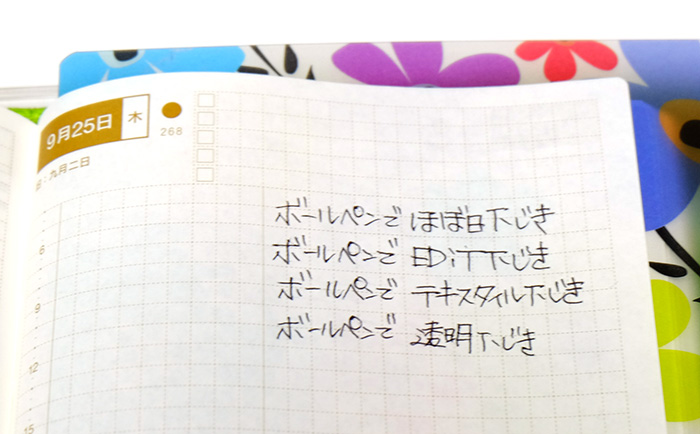 9月25日 木
268
日・九月二日
6
9
12
15
ボールペンで ほぼ日下じき
ボールペンで EDiT下じき
ボールペンで テキスタイル下じき
ボールペンで 透明下じき